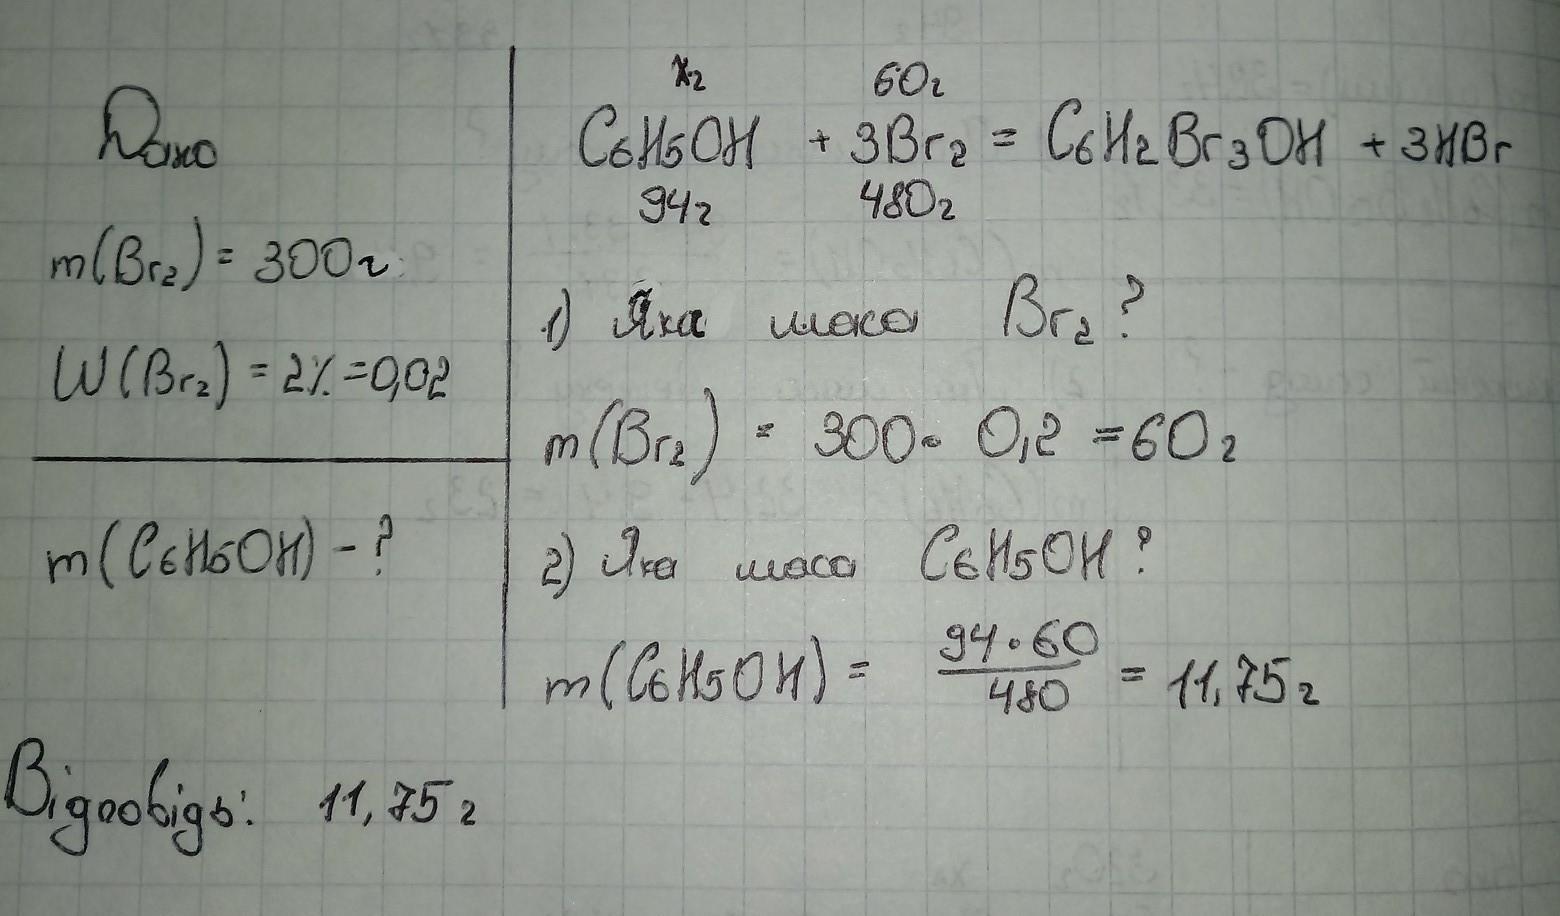 Дано
m(Br₂) = 300г
W(Br₂) = 2% = 0,02
m(C₆H₅OH) - ?
хг 60г
C₆H₅OH + 3Br₂ = C₆H₂Br₃OH + 3HBr
94г 480г
1) Яка маса Br₂?
m(Br₂) = 300 · 0,2 = 60г
2) Яка маса C₆H₅OH?
m(C₆H₅OH) = 94·60/480 = 11,75г
Відповідь: 11,75г